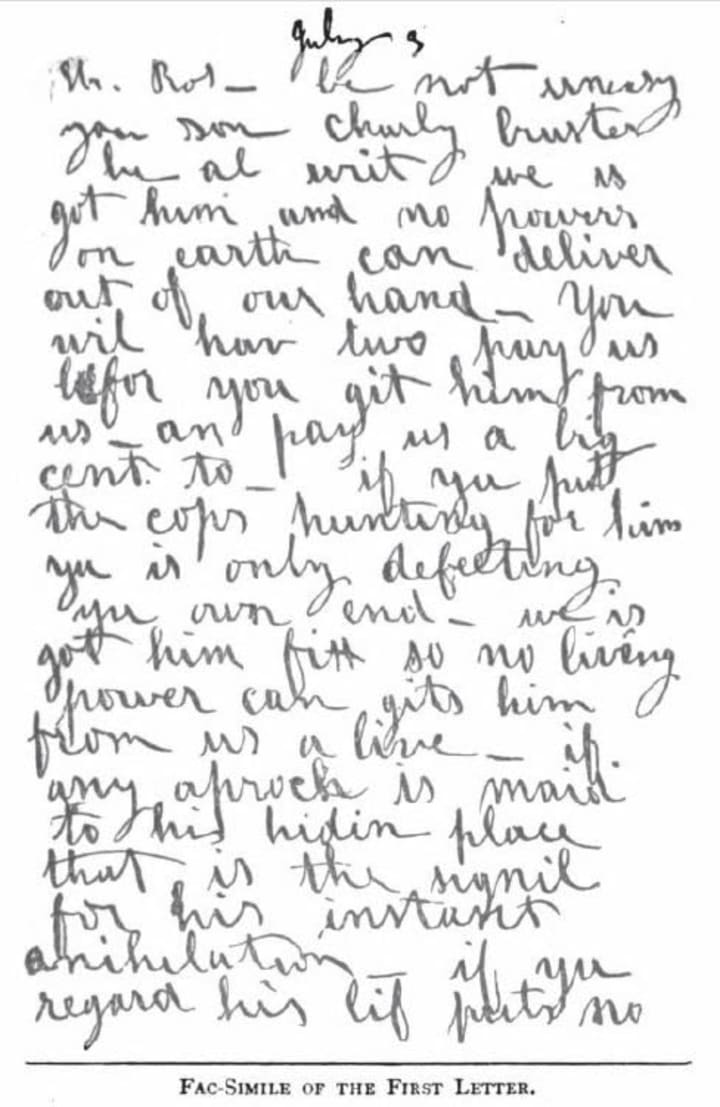 July 3
Mr. Ros— be not uneasy
you son charly bruster
he al writ we is
got him and no powers
on earth can deliver
out of our hand— You
wil hav two pay us
befor you git him from
us— an pay us a big
cent to— if yu put
the cops hunting for him
yu is only defeeting
yu own end— we is
got him fitt so no living
power can gits him
from us a live— if
any aproch is maid
to his hidin place
that is the signil
for his instant
anihelation— if yu
regard his lif puts no
FAC-SIMILE OF THE FIRST LETTER.